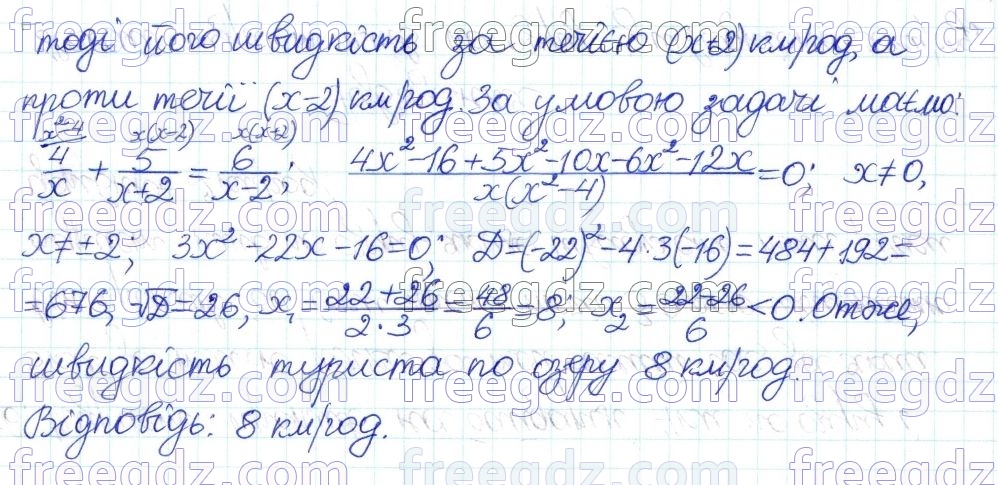 тоді його швидкість за течією (x+2) км/год, а
проти течії (x-2) км/год. За умовою задачі маємо:
x²-4 x(x-2) x(x+2)
4/x + 5/(x+2) = 6/(x-2); (4x²-16+5x²-10x-6x²-12x)/(x(x²-4)) = 0; x≠0,
x≠±2; 3x²-22x-16=0; D=(-22)²-4·3(-16)=484+192=
=676, √D=26, x₁=(22+26)/(2·3)=48/6=8; x₂=(22-26)/6<0. Отже,
швидкість туриста по озеру 8 км/год.
Відповідь: 8 км/год.
freegdz.com